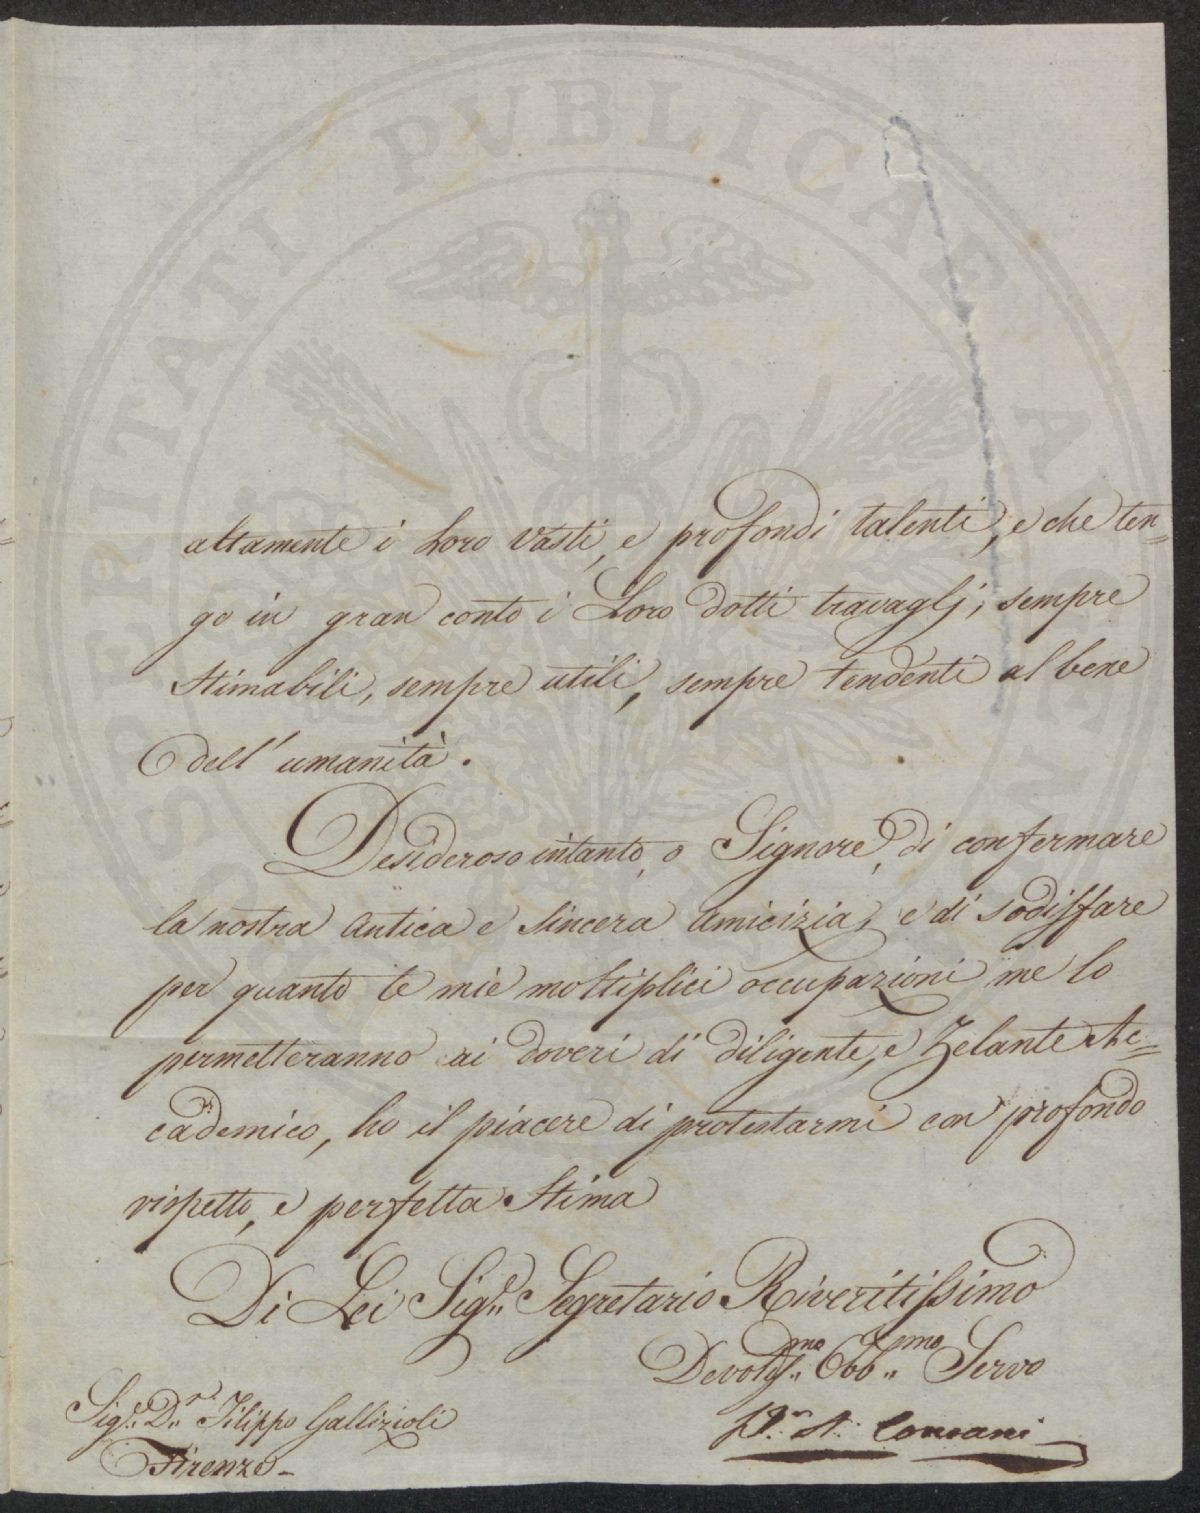 altamente i Loro vasti, e profondi talenti, e che ten=
go in gran conto i Loro dotti travaglj, sempre
stimabili, sempre utili, sempre tendenti al bene
dell' umanità.
Desideroso intanto, o Signore, di confermare
la nostra antica e sincera amicizia, e di sodisfare
per quanto le mie moltiplici occupazioni me lo
permetteranno ai doveri di diligente, e Zelante Ac=
cademico, ho il piacere di protestarmi con profondo
rispetto, e perfetta stima
Di Lei Sigr. Segretario Riveritissimo
Devotismo Obbmo Servo
Sigr. Dr. Filippo Gallizioli
Firenze